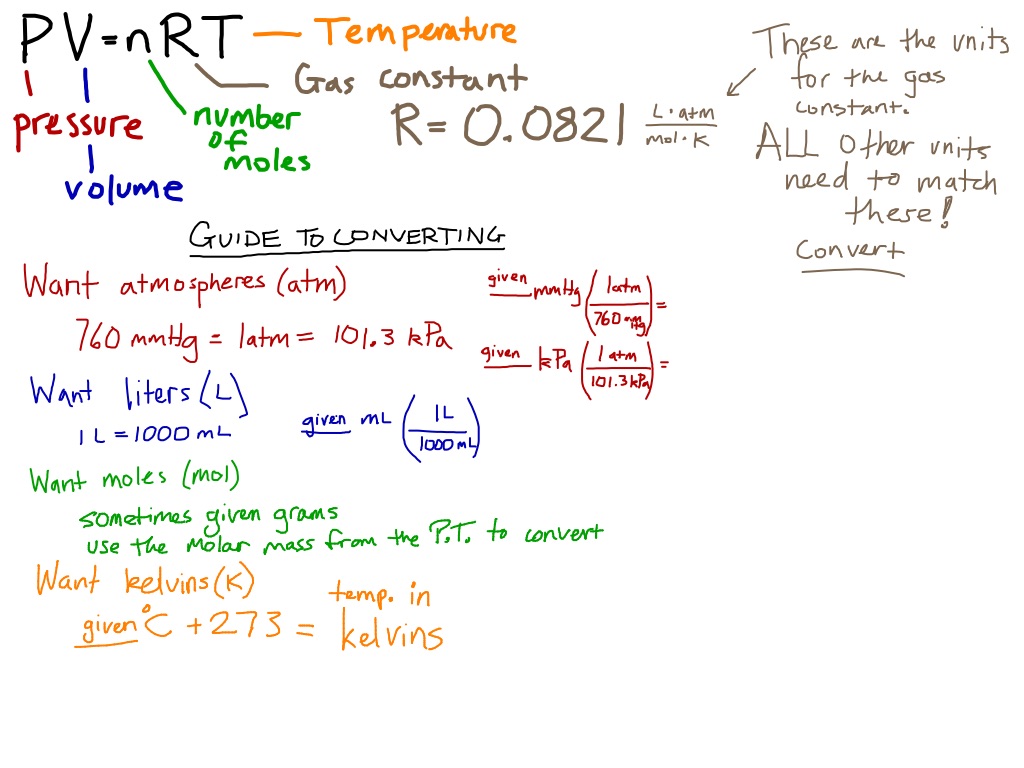 PV=nRT — Temperature
Gas constant
pressure
volume
number
of
moles
R= 0.0821 L·atm/mol·K
These are the units
for the gas
constant.
ALL other units
need to match
these!
Convert
GUIDE TO CONVERTING
Want atmospheres (atm)
760 mmHg = 1atm = 101.3 kPa
given mmHg (1atm/760 mmHg) =
given kPa (1 atm/101.3 kPa) =
Want liters (L)
1 L = 1000 mL
given mL (1L/1000 mL)
Want moles (mol)
sometimes given grams
use the molar mass from the P.T. to convert
Want kelvins (K)
given °C + 273 = temp. in
kelvins